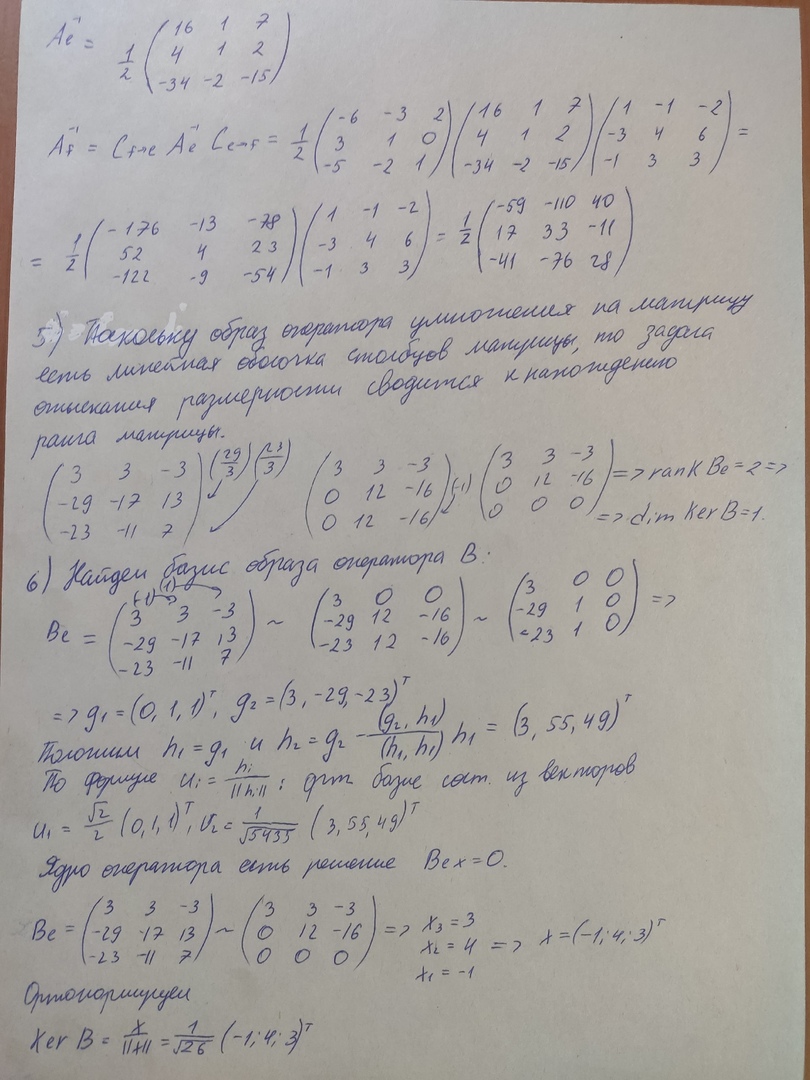 Ae⁻¹ = 1/2 (16 1 7; 4 1 2; -34 -2 -15)
Af⁻¹ = Cf→e Ae⁻¹ Ce→f = 1/2 (-6 -3 2; 3 1 0; -5 -2 1) (16 1 7; 4 1 2; -34 -2 -15) (1 -1 -2; -3 4 6; -1 3 3) =
= 1/2 (-176 -13 -78; 52 4 23; -122 -9 -54) (1 -1 -2; -3 4 6; -1 3 3) = 1/2 (-59 -110 40; 17 33 -11; -41 -76 28)
5) Поскольку образ оператора умножения на матрицу
есть линейная оболочка столбцов матрицы, то задача
отыскания размерности сводится к нахождению
ранга матрицы.
(3 3 -3; -29 -17 13; -23 -11 7) (29/3) (23/3) (3 3 -3; 0 12 -16; 0 12 -16) (-1) (3 3 -3; 0 12 -16; 0 0 0) => rank Be = 2 =>
=> dim Ker B = 1.
6) Найдем базис образа оператора B:
(-1) (1)
Be = (3 3 -3; -29 -17 13; -23 -11 7) ~ (3 0 0; -29 12 -16; -23 12 -16) ~ (3 0 0; -29 1 0; -23 1 0) =>
=> g₁ = (0, 1, 1)ᵀ, g₂ = (3, -29, -23)ᵀ
Положим h₁ = g₁ и h₂ = g₂ - (g₂, h₁)/(h₁, h₁) h₁ = (3, 55, 49)ᵀ
По формуле ui = hi/||hi|| : базис сост. из векторов
u₁ = √2/2 (0, 1, 1)ᵀ, v₂ = 1/√5435 (3, 55, 49)ᵀ
Ядро оператора есть решение Be x = 0.
Be = (3 3 -3; -29 -17 13; -23 -11 7) ~ (3 3 -3; 0 12 -16; 0 0 0) => x₃ = 3 x₂ = 4 x₁ = -1 => x = (-1; 4; 3)ᵀ
Ортонормируем
Ker B = x/||x|| = 1/√26 (-1; 4; 3)ᵀ